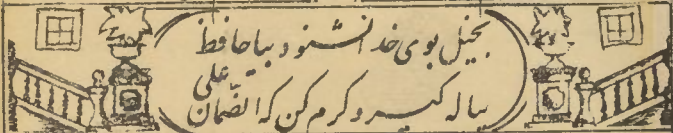 بخیل بوی خدا نشنود بیا حافظ
پیاله گیر و کرم کن که الضمان علی